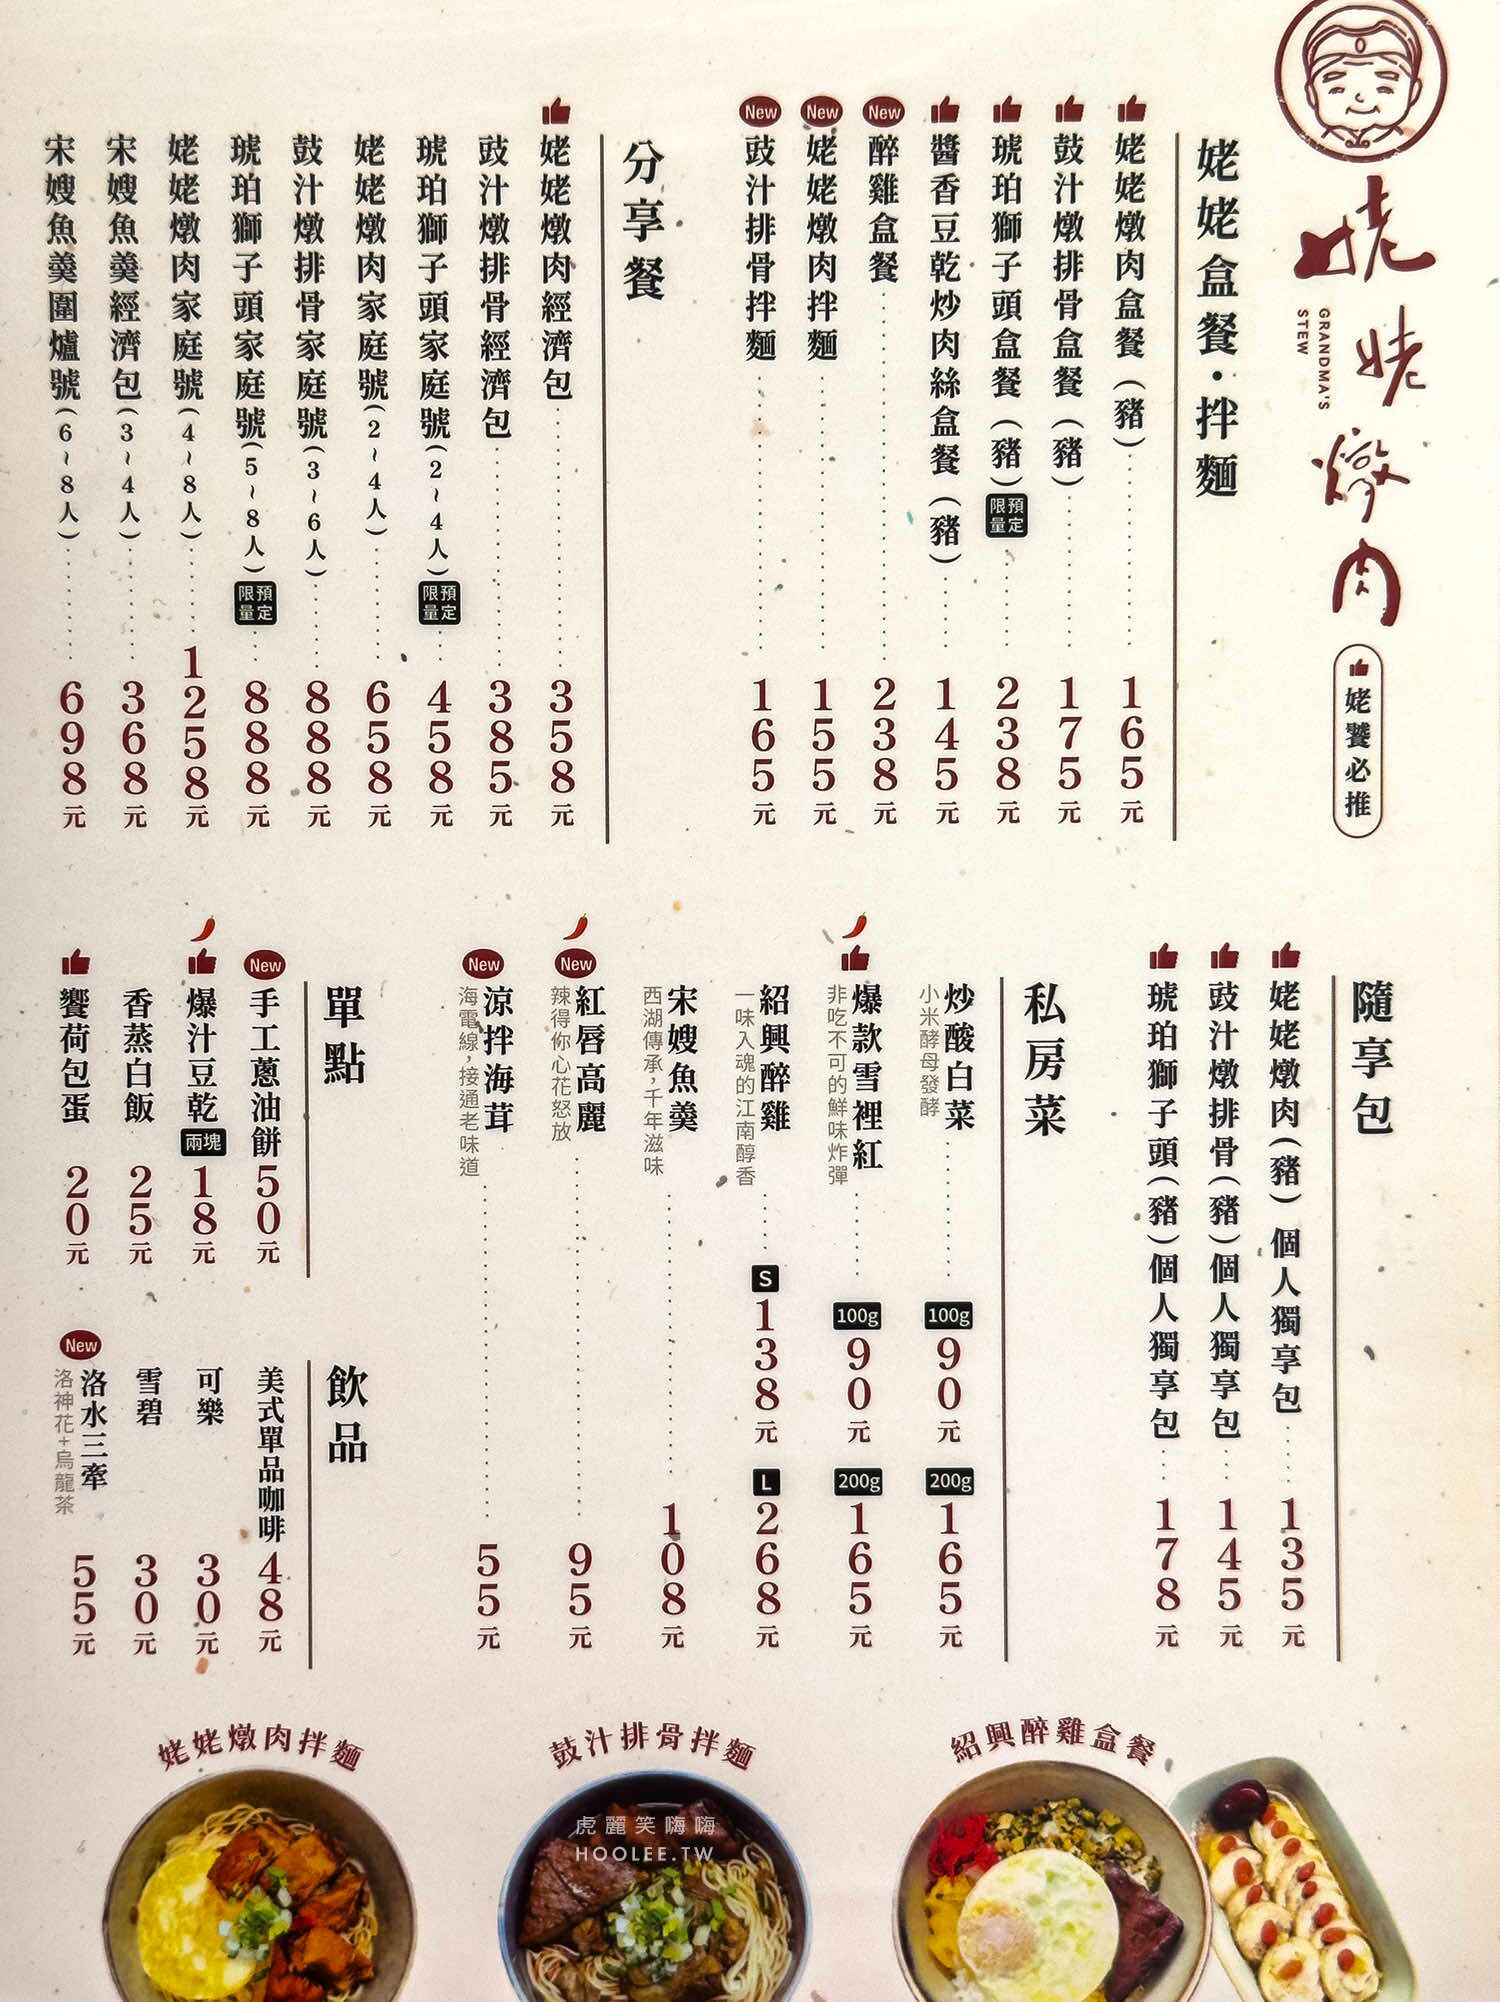 姥姥燉肉
GRANDMA'S
STEW
姥饕必推
姥姥盒餐·拌麵
姥姥燉肉盒餐(豬) 165元
鼓汁燉排骨盒餐(豬) 175元
琥珀獅子頭盒餐(豬) 預定限量 238元
醬香豆乾炒肉絲盒餐(豬) 145元
New 醉雞盒餐 238元
New 姥姥燉肉拌麵 155元
New 豉汁排骨拌麵 165元
分享餐
姥姥燉肉經濟包 358元
豉汁燉排骨經濟包 385元
琥珀獅子頭家庭號(2~4人) 預定限量 458元
姥姥燉肉家庭號(2~4人) 658元
鼓汁燉排骨家庭號(3~6人) 888元
琥珀獅子頭家庭號(5~8人) 預定限量 888元
姥姥燉肉家庭號(4~8人) 1258元
宋嫂魚羹經濟包(3~4人) 368元
宋嫂魚羹圍爐號(6~8人) 698元
隨享包
姥姥燉肉(豬)個人獨享包 135元
豉汁燉排骨(豬)個人獨享包 145元
琥珀獅子頭(豬)個人獨享包 178元
私房菜
炒酸白菜 100g 90元 200g 165元
小米酵母發酵
爆款雪裡紅 100g 90元 200g 165元
非吃不可的鮮味炸彈
紹興醉雞 S 138元 L 268元
一味入魂的江南醇香
宋嫂魚羹 108元
西湖傳承,千年滋味
New 紅唇高麗 95元
辣得你心花怒放
New 涼拌海茸 55元
海電線,接通老味道
單點
New 手工蔥油餅 50元
爆汁豆乾 兩塊 18元
香蒸白飯 25元
饗荷包蛋 20元
飲品
美式單品咖啡 48元
可樂 30元
雪碧 30元
New 洛水三牽 55元
洛神花+烏龍茶
姥姥燉肉拌麵
鼓汁排骨拌麵
紹興醉雞盒餐
虎麗笑嗨嗨
HOOLEE.TW